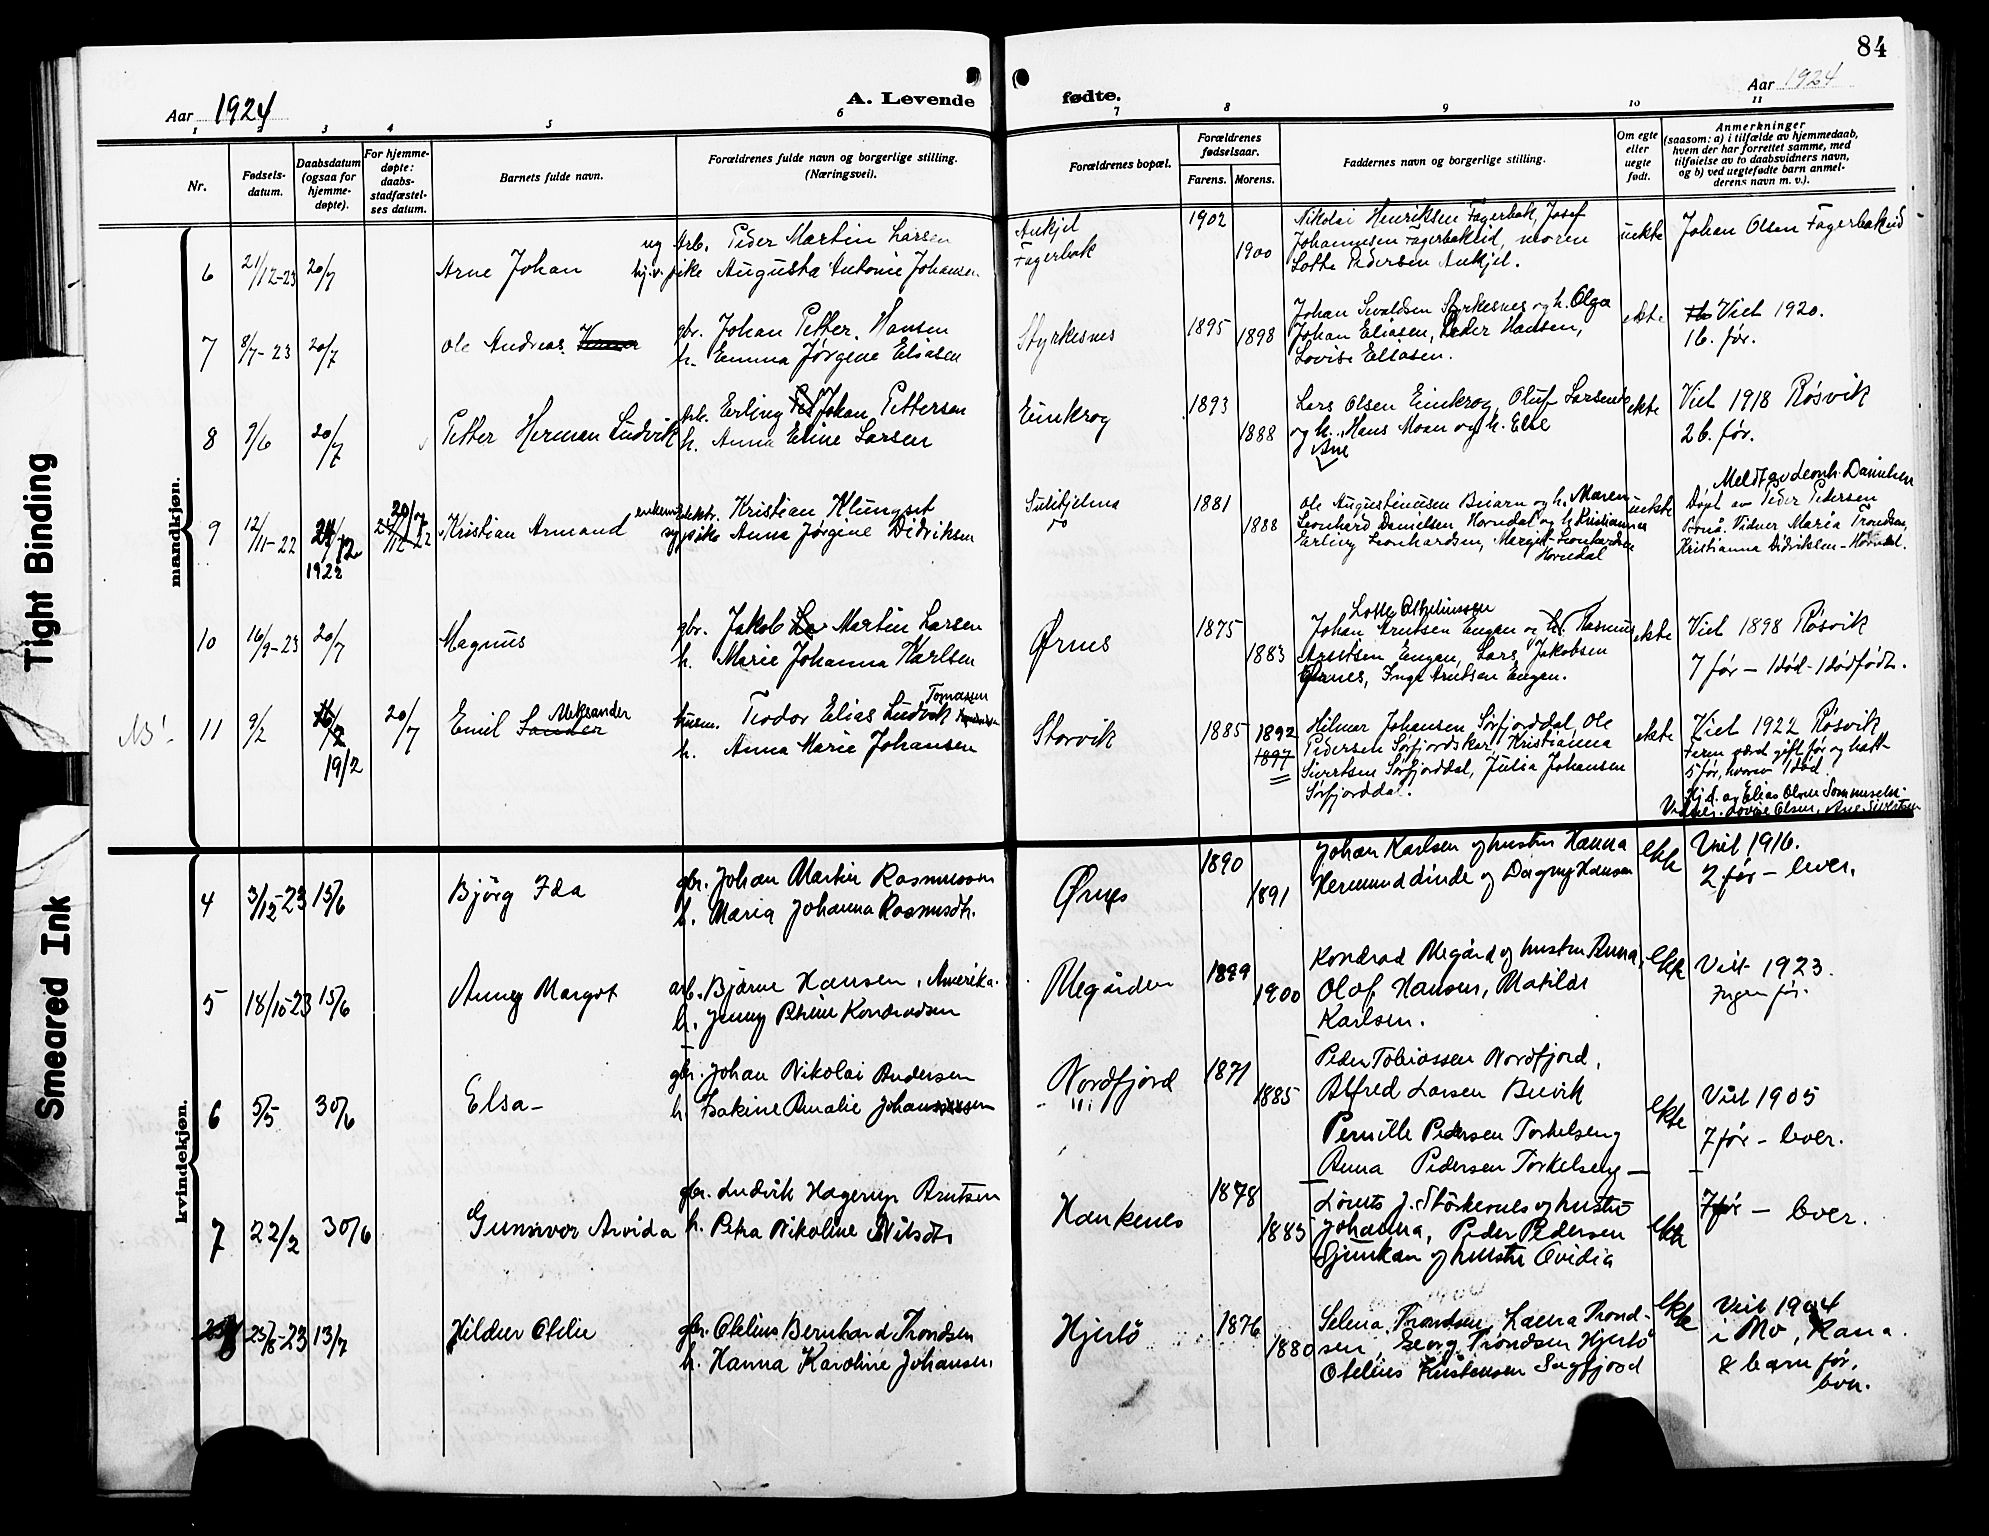 84
Aar 1924
A. Levende
fødte.
Aar 1924
1 2 3 4 5 6 7 8 9 10 11
Nr.
Fødsels-
datum.
Daabsdatum
(ogsaa for
hjemme-
døpte).
For hjemme-
døpte:
daabs-
stadfæstel-
ses datum.
Barnets fulde navn.
Forældrenes fulde navn og borgerlige stilling.
(Næringsvei).
Forældrenes bopæl.
Forældrenes
fødselsaar.
Farens. Morens.
Faddernes navn og borgerlige stilling.
Om egte
eller
uegte
født.
Anmerkninger
(saasom: a) i tilfælde av hjemmedaab,
hvem der har forrettet samme, med
tilføielse av to daabsvidners navn,
og b) ved uegtefødte barn anmel-
derens navn m. v.).
mandkjøn.
6 21/12-23 20/7 Arne Johan
ug Arb. Peder Martin Larsen
pike Augusta Antonie Johansen
Fagerbak
1902
1900
Nikolai Henriksen Fagerbak, Josef
Johannesen Fagerbaklid, moren
Lotte Pedersen
uekte
Johan Olsen Fagerbaklid
7 8/7-23 20/7 Ole Andreas
gbr. Johan Petter Hansen
h. Emma Jørgine Eliasen
Styrkesnes
1895
1898
Johan Sivaldsen Styrkesnes og h. Olga
Johan Eliasen, Peder Hansen,
Lovise Eliasen.
ekte
Viet 1920.
1 b. før.
8 9/6 20/7 Petter Herman Ludvik
Arb. Erling Johan Pettersen
h. Anna Eline Larsen
Einkrog
1893
1888
Lars Olsen Einkrog, Oluf Larsen
og h. Hans Moan og h. Else
Ane
ekte
Viet 1918 Røsvik
2 b. før.
9 12/11-22 24/12 1922 20/7 Kristian Armand
enkem. Kristian Klungset
pike Anna Jørgine Didriksen
Sulitjelma
1881
1888
Ole Augustinusen Biarn og h. Maren
Leonhard Danielsen Horndal og h. Kristianna
Erling Leonhardsen, Margit Leonhardsen
Horndal
uekte
Meldt av Leonh. Danielsen
Døpt av Peder Pedersen
Vidner Maria Trondsen,
Kristianna Didriksen - Horndal.
10 16/9-23 20/7 Magnus
gbr. Jakob Martin Larsen
h. Marie Johanna Karlsen
Ørnes
1875
1883
Lotte Othelinssen
Johan Arntsen Engan og h. Rasmus
Arntsen Engan, Lars Jakobsen
Ørnes, Inga Arntsen Engan.
ekte
Viet 1898 Røsvik
7 før - 1 død - 1 dødfødt.
11 9/2 19/2 20/7 Emil Sander Aleksander
husm. Teodor Elias Ludvik Tomassen
h. Anna Marie Johansen
Storvik
1885
1892
1897
Hilmar Johansen Sørfjorddal, Ole
Pedersen Sørfjordskar, Kristianna
Sivertsen Sørfjorddal, Julia Johansen
Sørfjorddal.
ekte
Viet 1922 Røsvik
Faren været gift før og hatt
5 før, hvorav 1 død.
Hj.d. av Elias Olsen Sommerset
kvindekjøn.
4 3/12-23 15/6 Bjørg Ida
gbr. Johan Martin Rasmussen
h. Maria Johanna Rasmusdtr.
Ørnes
1890
1891
Johan Karlsen og hustru Hanna
Hermund Linde og Dagny Hansen
ekte
Viet 1916.
2 før - lever.
5 18/10-23 15/6 Anny Margot
arb. Bjarne Hansen, Amerika.
h. Jenny Petrine Kondradsen
Megården
1899
1900
Kondrad Megård og hustru Anna,
Olaf Hansen, Matilde
Karlsen.
ekte
Viet 1923.
Ingen før.
6 5/5 30/6 Elsa
gbr. Johan Nikolai Andersen
h. Isakine Amalie Johansen
Nordfjord
1871
1885
Peder Tobiassen Nordfjord,
Alfred Larsen Buvik
Pernille Pedersen Torkelseng
Anna Pedersen Torkelseng
ekte
Viet 1905
7 før - lever.
7 22/2 30/6 Gunnvor Arvida
gbr. Ludvik Hagerup Arntsen
h. Petra Nikoline Nilsdtr
Hankenes
1878
1885
Lorents J. Storkernes og hustru
Johanna, Peder Pedersen
Sjunkan og hustru Ovidia
ekte
7 før - lever.
8 25/8-23 13/7 Hildur Otelie
gbr. Otelius Bernhard Trondsen
h. Hanna Karoline Johansen,
Hjertø
1876
1880
Selma Trondsen, Laura Trond-
sen, Georg Trondsen Hjertø
Otelius Kristensen Sagfjord
ekte
Viet 1904
i Mo, Rana.
8 barn før,
lever.
Tight Binding
Smeared Ink